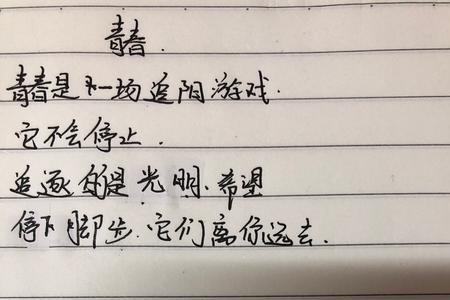 青春.
青春是一场追阳游戏.
它不会停止.
追逐的是光明、希望
停下脚步.它们离你远去.